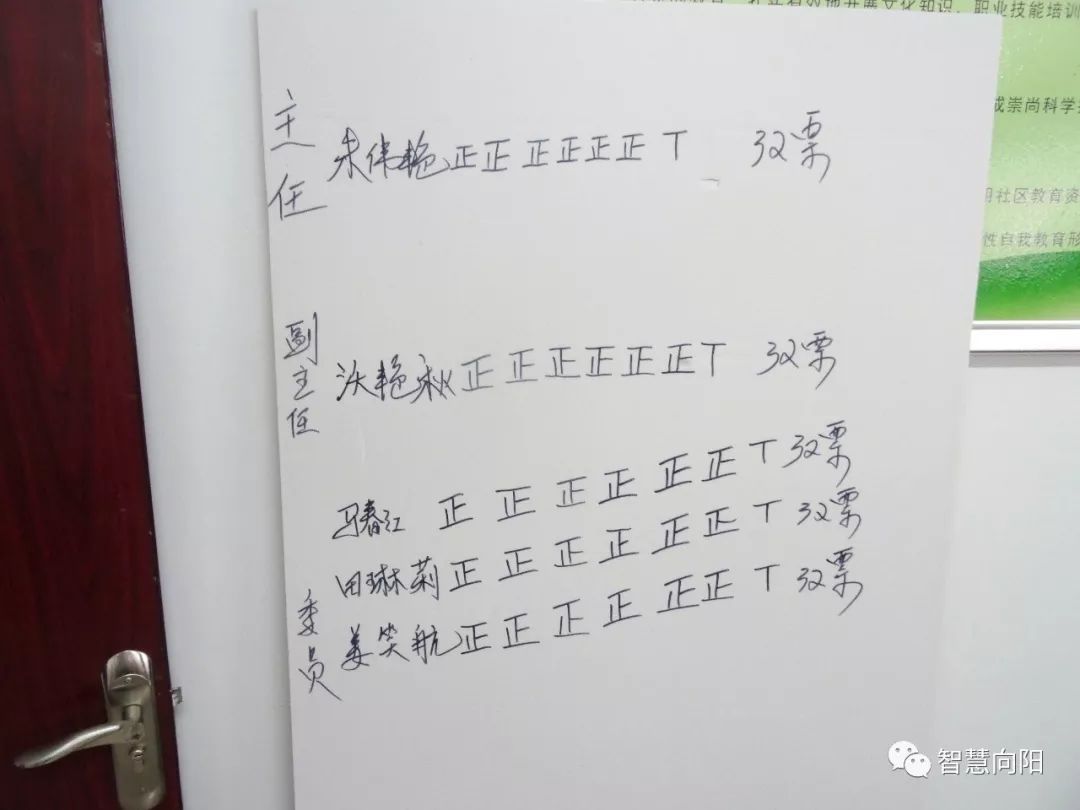 扎立有效地开展文化知识、职业技能培训
成崇尚科学
用社区教育资
性自我教育形
主任
朱伟艳 正正正正正正丅 32票
副主任
沃艳秋 正正正正正正丅 32票
委员
马春江 正正正正正正丅 32票
田琳莉 正正正正正正丅 32票
姜笑航 正正正正正正丅 32票
智慧向阳